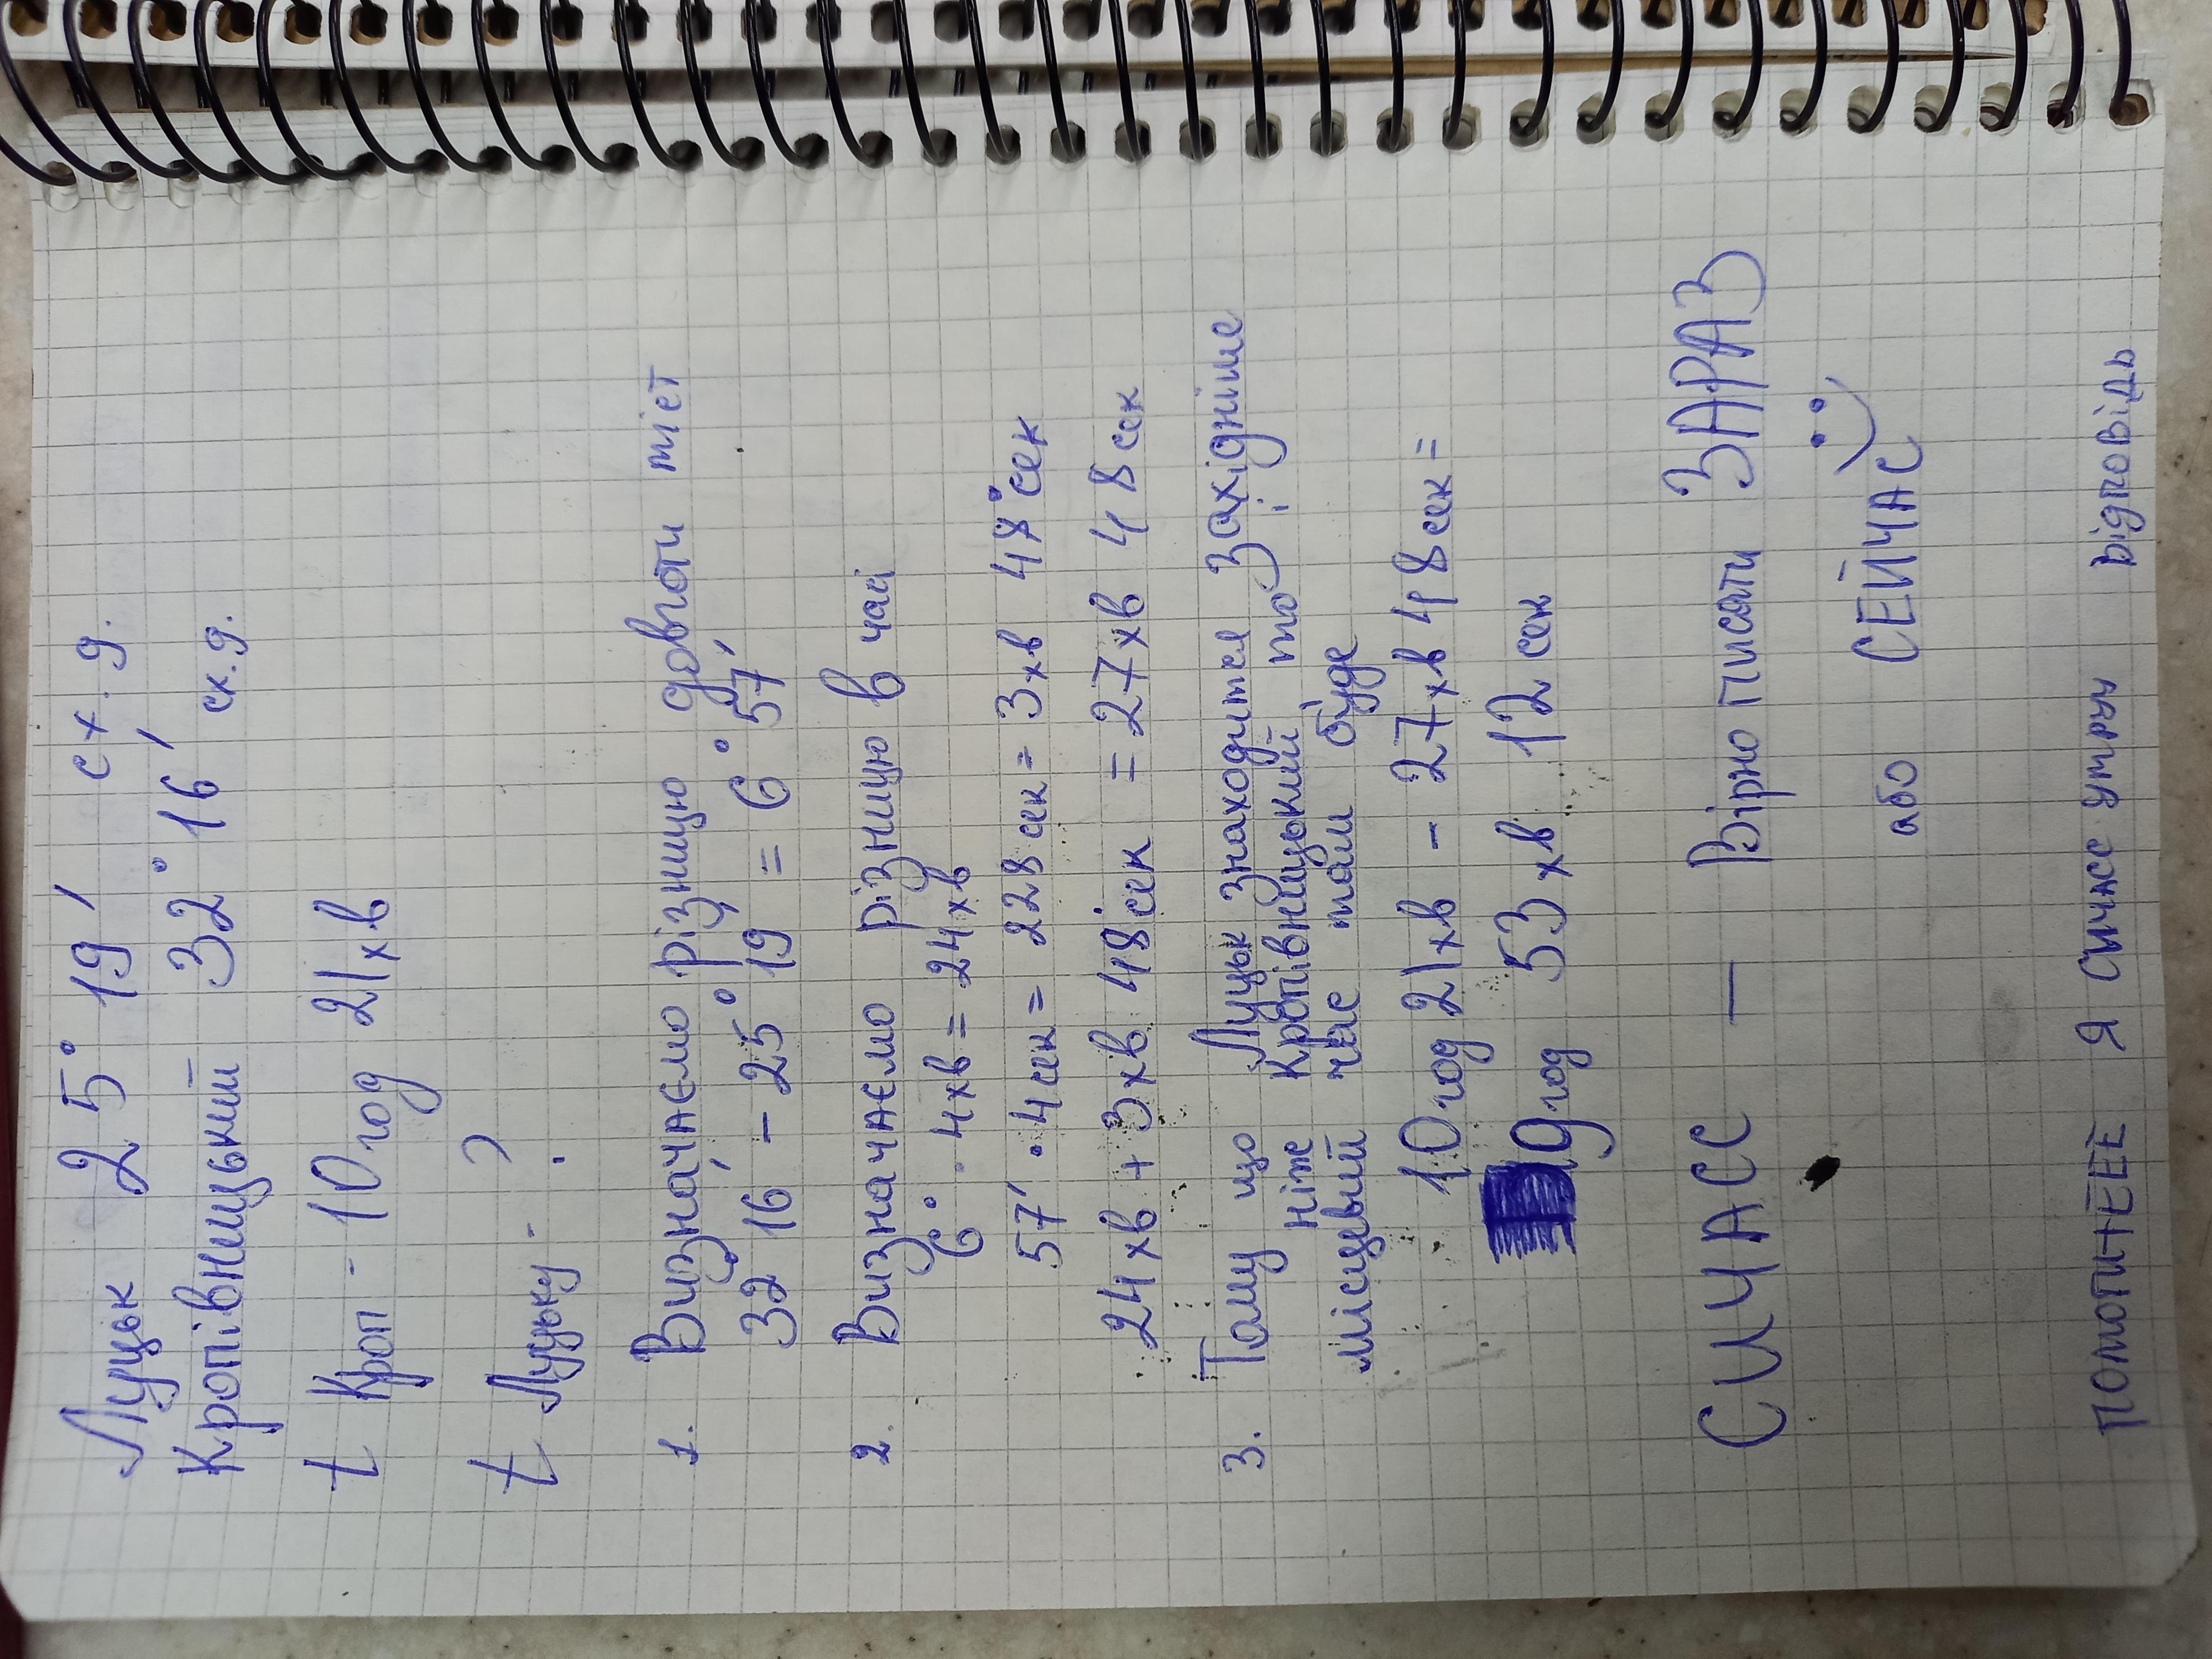 Луцьк 25° 19′ сх. д.
Кропівницький 32° 16′ сх.д.
t Кроп - 10год 21хв
t Луцьку - ?
1. Визначаємо різницю довготи міст
32° 16′ - 25° 19′ = 6° 57′
2. Визначаємо різницю в часі
6° · 4хв = 24хв
57′ · 4сек = 228 сек = 3хв 48 сек
24хв + 3хв 48сек = 27хв 48сек
3. Тому що Луцьк знаходится західніше
ніж Кропівницький, то і
місцевий час там буде
10год 21хв - 27хв 48сек =
9год 53хв 12сек
СИЧАСС — Вірно писати ЗАРАЗ
або СЕЙЧАС
Я сичасс
відповідь